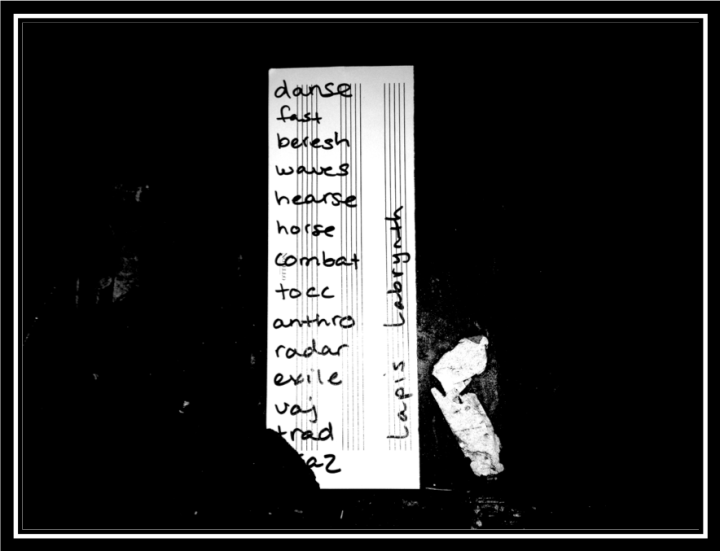 danse
fast
beresh
waves
hearse
horse
combat
tocc
anthro
radar
exile
vaj
trad
Lapis Labrynth